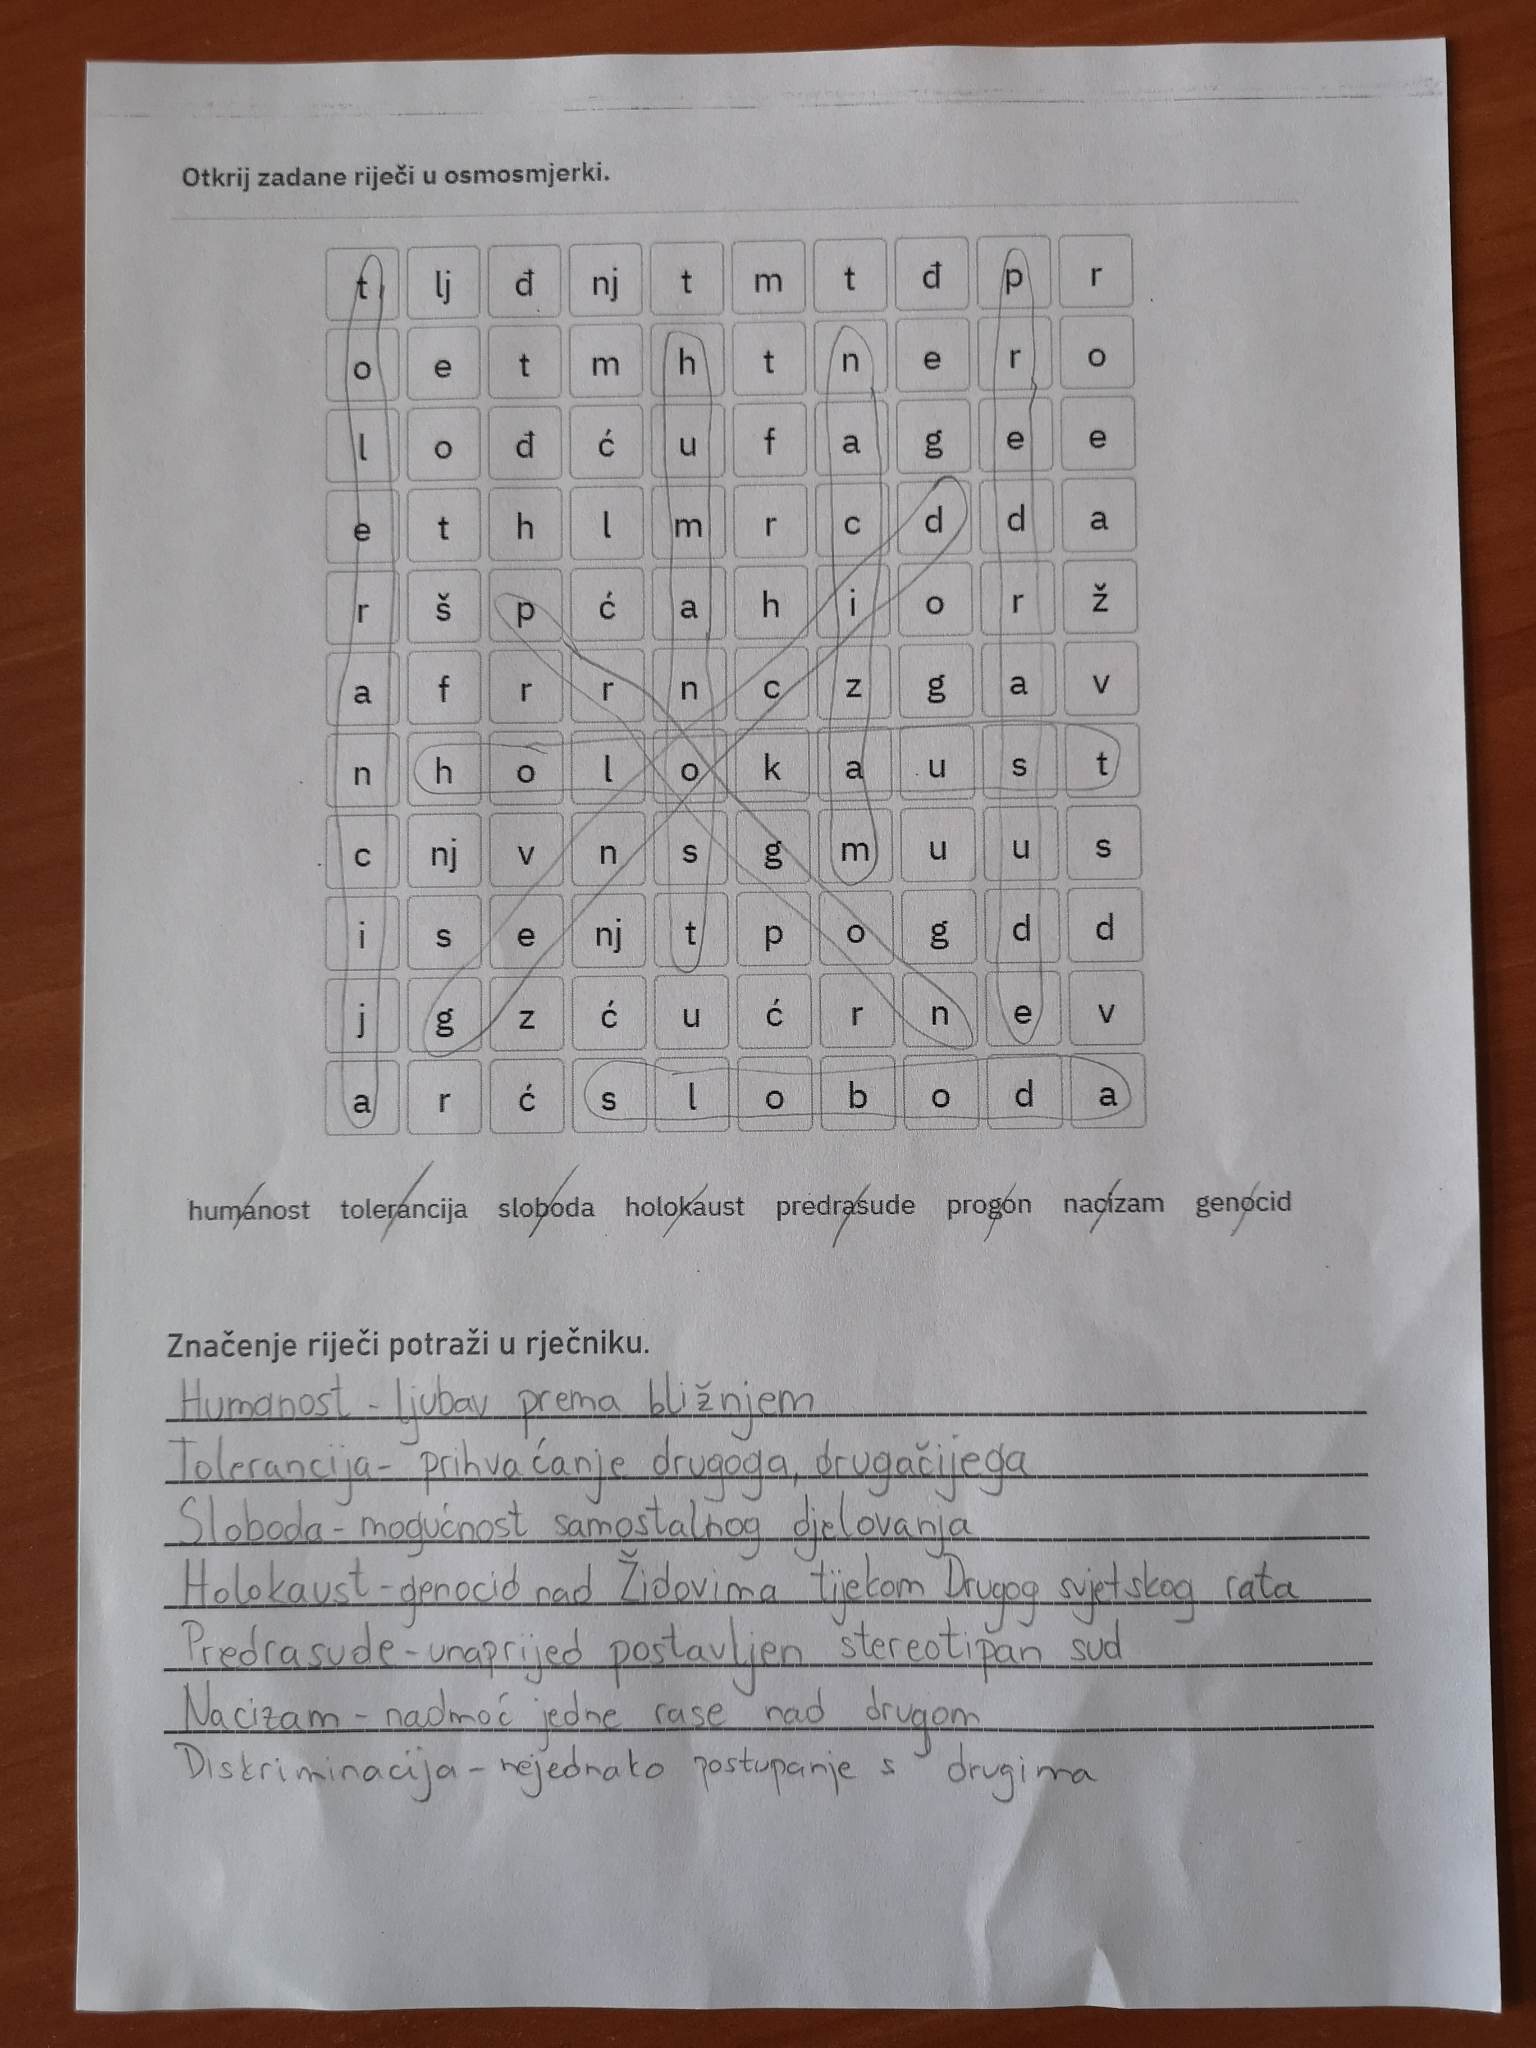 Otkrij zadane riječi u osmosmjerki.
t lj đ nj t m t đ p r
o e t m h t n e r o
l o đ ć u f a g e e
e t h l m r c d d a
r š p ć a h i o r ž
a f r r n c z g a v
n h o l o k a u s t
c nj v n s g m u u s
i s e nj t p o g d d
j g z ć u ć r n e v
a r ć s l o b o d a
humanost tolerancija sloboda holokaust predrasude progon nacizam genocid
Značenje riječi potraži u rječniku.
Humanost - ljubav prema bližnjem
Tolerancija - prihvaćanje drugoga, drugačijega
Sloboda - mogućnost samostalnog djelovanja
Holokaust - genocid nad Židovima tijekom Drugog svjetskog rata
Predrasude - unaprijed postavljen stereotipan sud
Nacizam - nadmoć jedne rase nad drugom
Diskriminacija - nejednako postupanje s drugima